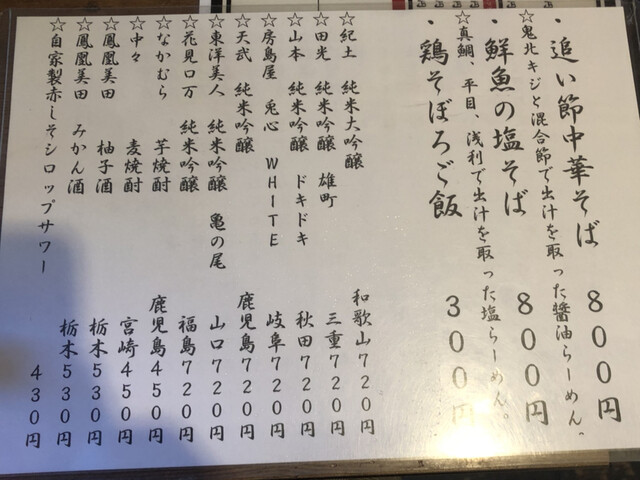 ・追い節中華そば 800円
☆鬼北キジと混合節で出汁を取った醤油らーめん。
・鮮魚の塩そば 800円
☆真鯛、平目、浅利で出汁を取った塩らーめん。
・鶏そぼろご飯 300円
☆紀土 純米大吟醸 和歌山720円
☆田光 純米吟醸 雄町 三重720円
☆山本 純米吟醸 ドキドキ 秋田720円
☆房島屋 兎心 WHITE 岐阜720円
☆天武 純米吟醸 鹿児島720円
☆東洋美人 純米吟醸 亀の尾 山口720円
☆花見ロ万 純米吟醸 福島720円
☆なかむら 芋焼酎 鹿児島450円
☆中々 麦焼酎 宮崎450円
☆鳳凰美田 柚子酒 栃木530円
☆鳳凰美田 みかん酒 栃木530円
☆自家製赤しそシロップサワー 430円